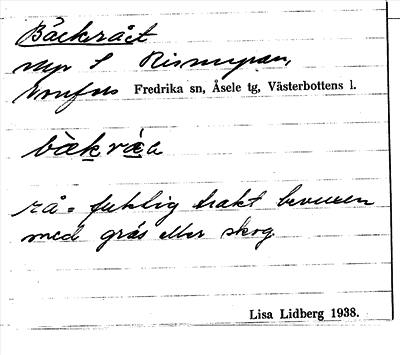 Bäckrået
myr S Rismyran,
Fredrika sn, Åsele tg, Västerbottens l.
rå = fuktig trakt bevuxen
med gräs eller skog
Lisa Lidberg 1938.